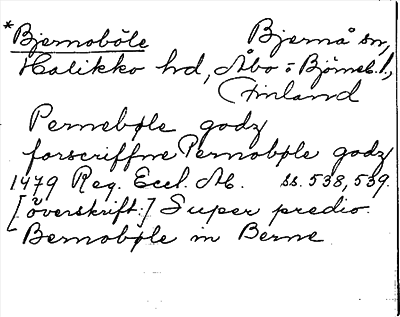 *Bjernoböle Bjernå sn,
Halikko hd, Åbo = Björneb. l.,
Finland
Pernebøle godz
forscriffne Pernobøle godz
1479 Reg. Eccl. Ab. ss. 538, 539.
[överskrift:] Super predio
Bernobøle in Berne